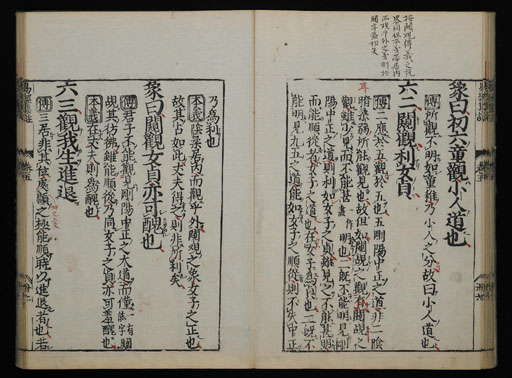 象曰初六童觀小人道也
傳所觀不明如童稚乃小人之分故曰小人道也
六二闚觀利女貞
傳二應於五觀於五也五剛陽中正之道非二陰
暗柔弱所能觀見也故但如闚覘之觀耳闚覘之
觀雖少見而不能甚明也二既不能明見剛
陽中正之道則利如女子之貞雖見之不能甚明
而能順從者女子之道也在女子為貞也二既不
能明見九五之道能如女子之順從則不失中正
乃為利也
本義陰柔居內而觀乎外闚觀之象女子之正也
故其占如此丈夫得之則非所利矣
象曰闚觀女貞亦可醜也
傳君子不能觀見剛陽中正之大道而僅闚
覘其彷彿雖能順從乃同女子之貞亦可羞醜也
本義在丈夫則為醜也
六三觀我生進退
傳三居非其位處順之極能順時以進退者也若